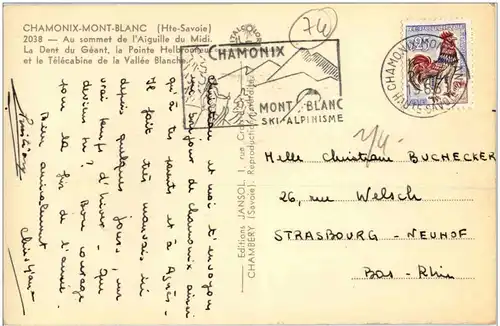 CHAMONIX-MONT-BLANC (Hte-Savoie)
2038 — Au sommet de l'Aiguille du Midi.
La Dent du Géant, la Pointe Helbronner
et le Télécabine de la Vallée Blanche.
74
CHAMONIX
MONT-BLANC
SKI-ALPINISME
CHAMONIX-MONT-BLANC
HAUTE-SAVOIE
2/4
et moi t'envoyons
un bonjour de chamonix ainsi
qu'à tes parents et à Agnès.
Il fait très mauvais ici
depuis quelques jours, un
vrai temps d'hiver - que
deviens tu? Bon courage
pour la fin de l'année.
Bien amicalement
Christiane
Editions JANSOL, 1, rue
CHAMBÉRY (Savoie). Reproduction interdite
Melle Christiane BUCHECKER
26, rue Welsch
STRASBOURG - NEUHOF
Bas-Rhin